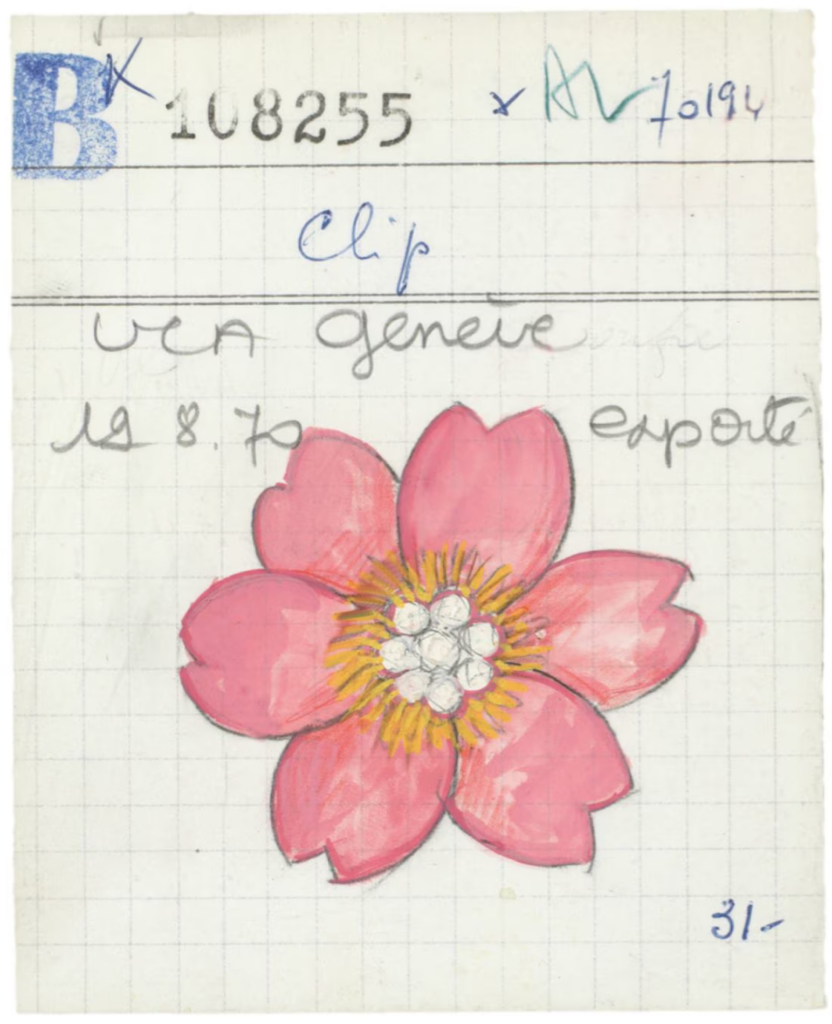 B 108255 x AV 70194
Clip
VCA Genève
19 8.70 exporté
31-